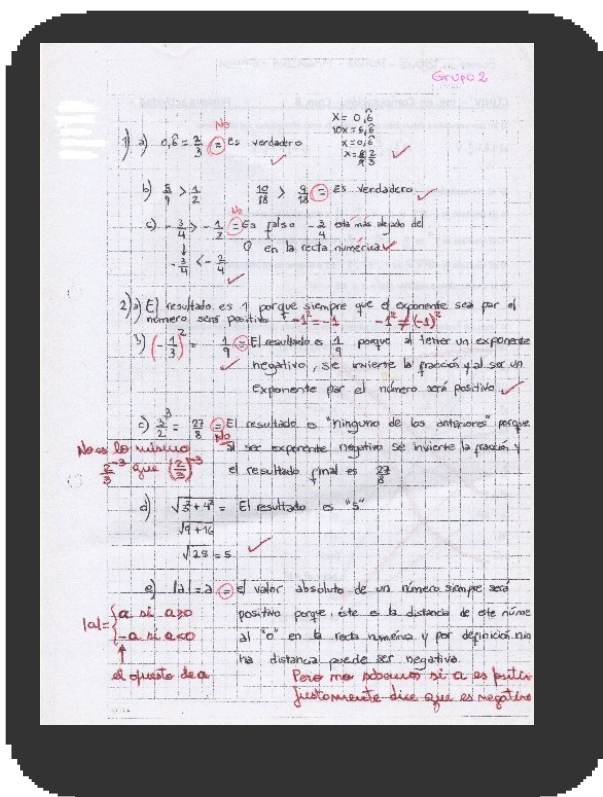 Grupo 2
x = 0,6̂
10x = 6,6̂
No
x = 0,6̂
1) a) 0,6̂ = 2/3 = Es verdadero
b) 5/9 > 1/2 10/18 > 9/18 = Es verdadero
No
c) -3/4 > -1/2 = Es falso -3/4 está más alejado del
0 en la recta numérica
↓
-3/4 < -2/4
2) a) El resultado es 1 porque siempre que el exponente sea par el
número será positivo -1² = -1 -1² ≠ (-1)²
b) (-1/3)² = 1/9 = El resultado es 1/9 porque al tener un exponente
negativo, se invierte la fracción y al ser un
exponente par el número será positivo
c) 3/2³ = 27/8 = El resultado es "ninguno de los anteriores" porque
No
No es lo mismo al ser exponente negativo se invierte la fracción y
2/3⁻³ que (2/3)⁻³ el resultado final es 27/8
d) √3²+4² = El resultado es "5"
√9+16
√25 = 5
e) |a| = a = el valor absoluto de un número siempre será
|a| = { a si a≥0 positivo porque, éste es la distancia de ese núme
-a si a<0 al "0" en la recta numérica y por definición nin
↑ ha distancia puede ser negativa.
el opuesto de a Pero no sabemos si a es positi
Justamente dice que es negativo